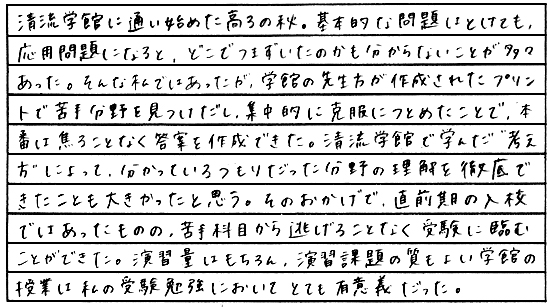 清流学館に通い始めた高3の秋。基本的な問題はとけても、
応用問題になると、どこでつまずいたのかも分からないことが多々
あった。そんな私ではあったが、学館の先生方が作成されたプリン
トで苦手分野を見つけだし、集中的に克服につとめたことで、本
番は焦ることなく答案を作成できた。清流学館で学んだ"考え
方"によって、分かっているつもりだった分野の理解を徹底で
きたことも大きかったと思う。そのおかげで、直前期の入校
ではあったものの、苦手科目から逃げることなく受験に臨む
ことができた。演習量はもちろん、演習課題の質もよい学館の
授業は私の受験勉強においてとても有意義だった。